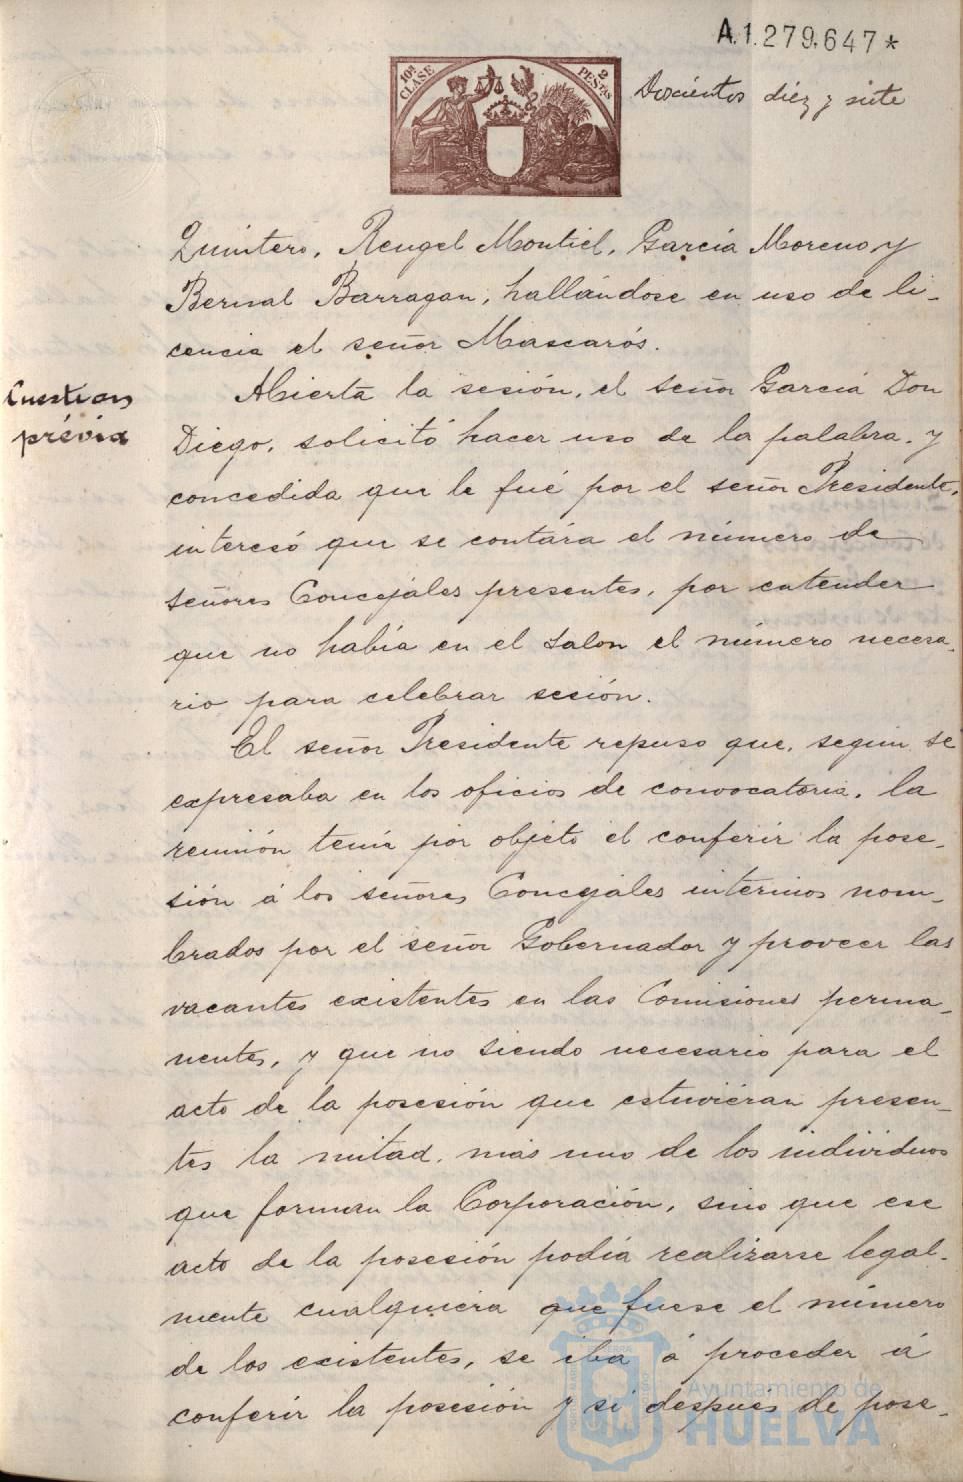 A.1.279.647*
10ª CLASE
2 PESTAS
Doscientos diez y siete
Quintero, Rengel Montiel, García Moreno y
Bernal Barragan, hallándose en uso de li-
cencia el señor Mascarós.
Cuestion
prévia
Abierta la sesión, el señor García Don
Diego, solicitó hacer uso de la palabra, y
concedida que le fué por el señor Presidente,
interesó que se contára el número de
señores Concejáles presentes, por entender
que no había en el salon el número necesa-
rio para celebrar sesión.
El señor Presidente repuso que, segun se
expresaba en los oficios de convocatoria, la
reunión tenia por objeto el conferir la pose-
sión á los señores Concejáles interinos nom-
brados por el señor Gobernador y proveer las
vacantes existentes en las Comisiones perma-
nentes, y que no siendo necesario para el
acto de la posesión que estuviéran presen-
tes la mitad, más uno de los individuos
que forman la Corporación, sino que ese
acto de la posesión podía realizarse legal-
mente cualquiera que fuese el número
de los existentes, se iba á proceder á
conferir la posesión y si después de pose-
Ayuntamiento de
HUELVA